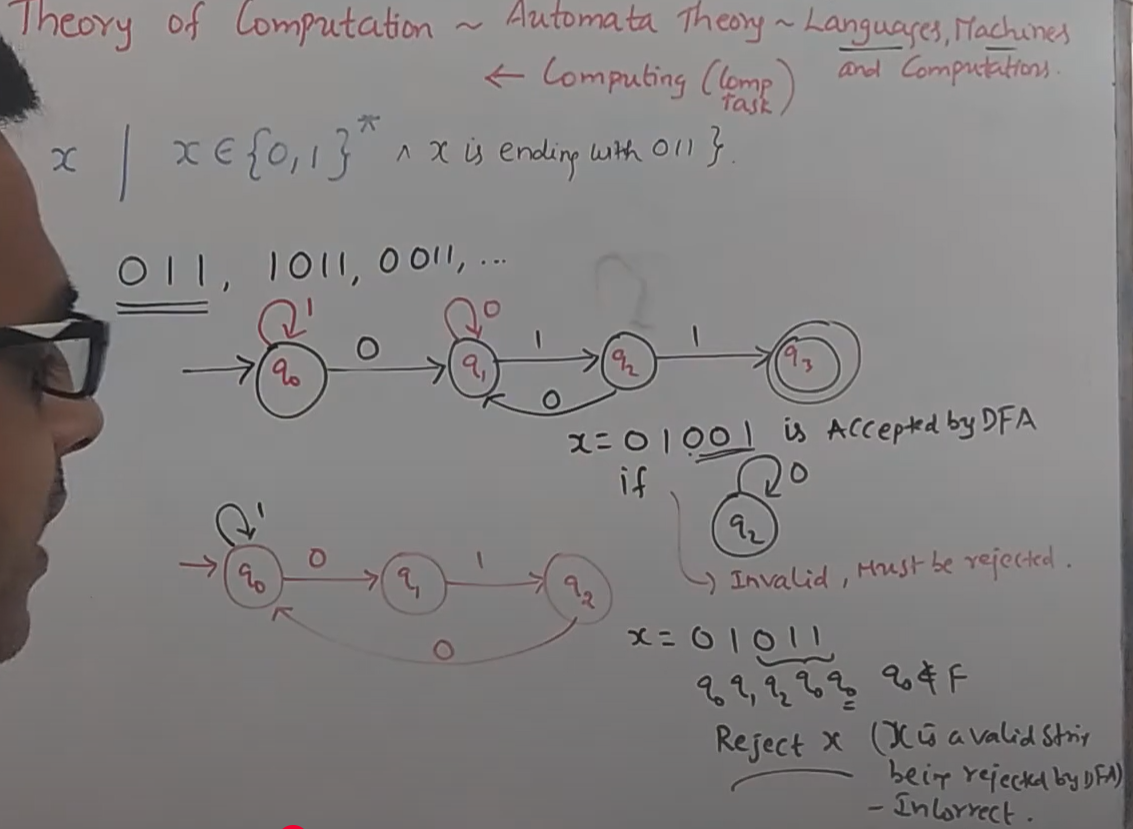 Theory of Computation ~ Automata Theory ~ Languages, Machines
and Computations.
← Computing (Comp Task)
x | x ∈ {0,1}* ∧ x is ending with 011 }.
011, 1011, 0011, ...
1 0
q0 0 q1 1 q2 1 q3
0
x = 01001 is Accepted by DFA
if 0
q2
Invalid, Must be rejected.
1
q0 0 q1 1 q2
0
x = 01011
q0 q1 q2 q0 q0 q0 ∉ F
Reject x (x is a valid strin
being rejected by DFA)
- Incorrect.